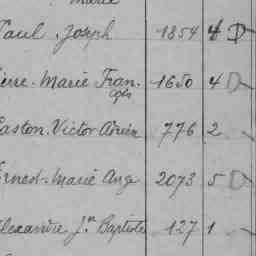 Marie
Paul, Joseph 1854 4 D
Pierre-Marie Fran
çois 1650 4 D
Gaston-Victor Adrien 776 2
Ernest-Marie Ang 2073 5 D
Alexandre Jn Baptiste 127 1